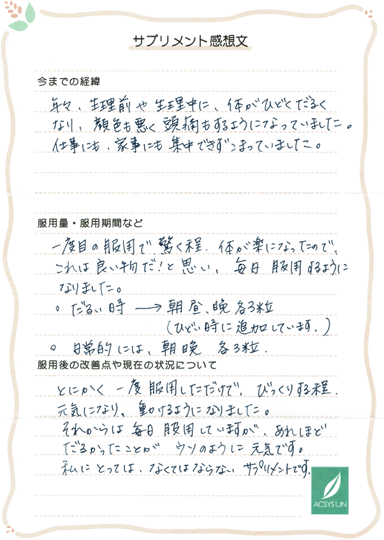 サプリメント感想文
今までの経緯
年々、生理前や生理中に、体がひどくだるく
なり、顔色も悪く頭痛もするようになっていました。
仕事にも、家事にも集中できずこまっていました。
服用量・服用期間など
一度目の服用で驚く程、体が楽になったので、
これは良い物だ!と思い、毎日服用するように
なりました。
○ だるい時 → 朝昼、晩各3粒
(ひどい時に追加しています。)
○ 日常的には、朝晩 各3粒.
服用後の改善点や現在の状況について
とにかく一度服用しただけで、びっくりする程、
元気になり、動けるようになりました。
それからは毎日服用していますが、あれほど
だるかったことがウソのように元気です。
私にとっては、なくてはならないサプリメントです。
ACSYS UN